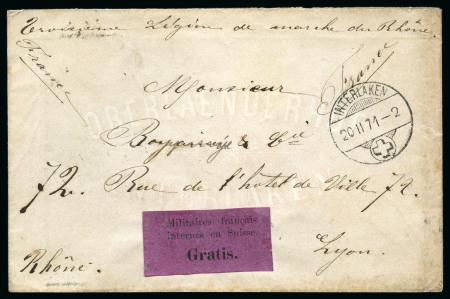 Troisième Légion de marche du Rhône.
France
France
Monsieur
INTERLAKEN
20 II 71 - 2
& Cie
72. Rue de l'hotel de Ville 72.
Militaires français
internés en Suisse.
Gratis.
Lyon.
Rhône.